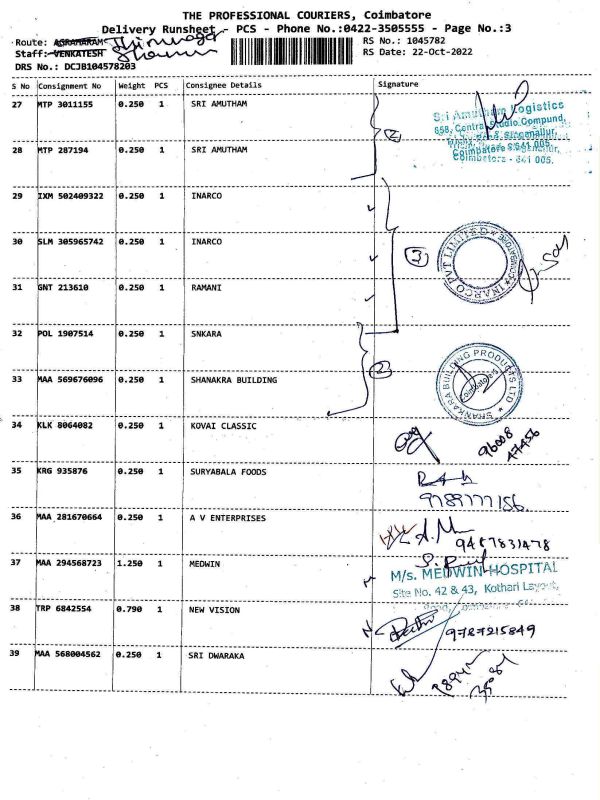 THE PROFESSIONAL COURIERS, Coimbatore
Delivery Runsheet - PCS - Phone No.:0422-3505555 - Page No.:3
Route: AGRAHARAM
RS No.: 1045782
Staff: VENKATESH
RS Date: 22-Oct-2022
DRS No.: DCJB104578203
S No Consignment No Weight PCS Consignee Details Signature
27 MTP 3011155 0.250 1 SRI AMUTHAM
Sri Amutham Logistics
858, Central Studio Compund,
Coimbatore - 641 005.
28 MTP 287194 0.250 1 SRI AMUTHAM
2
29 IXM 502409322 0.250 1 INARCO
30 SLM 305965742 0.250 1 INARCO
3
INARCO PVT LIMITED * COIMBATORE *
31 GNT 213610 0.250 1 RAMANI
32 POL 1907514 0.250 1 SNKARA
33 MAA 569676096 0.250 1 SHANAKRA BUILDING
2
SHANKARA BUILDING PRODUCTS LTD
Coimbatore
34 KLK 8064082 0.250 1 KOVAI CLASSIC
96008
47456
35 KRG 935876 0.250 1 SURYABALA FOODS
9789777156
36 MAA 281670664 0.250 1 A V ENTERPRISES
9487831478
37 MAA 294568723 1.250 1 MEDWIN
M/s. MEDWIN HOSPITAL
Site No. 42 & 43, Kothari Layout,
38 TRP 6842554 0.790 1 NEW VISION
9787215849
39 MAA 568004562 0.250 1 SRI DWARAKA